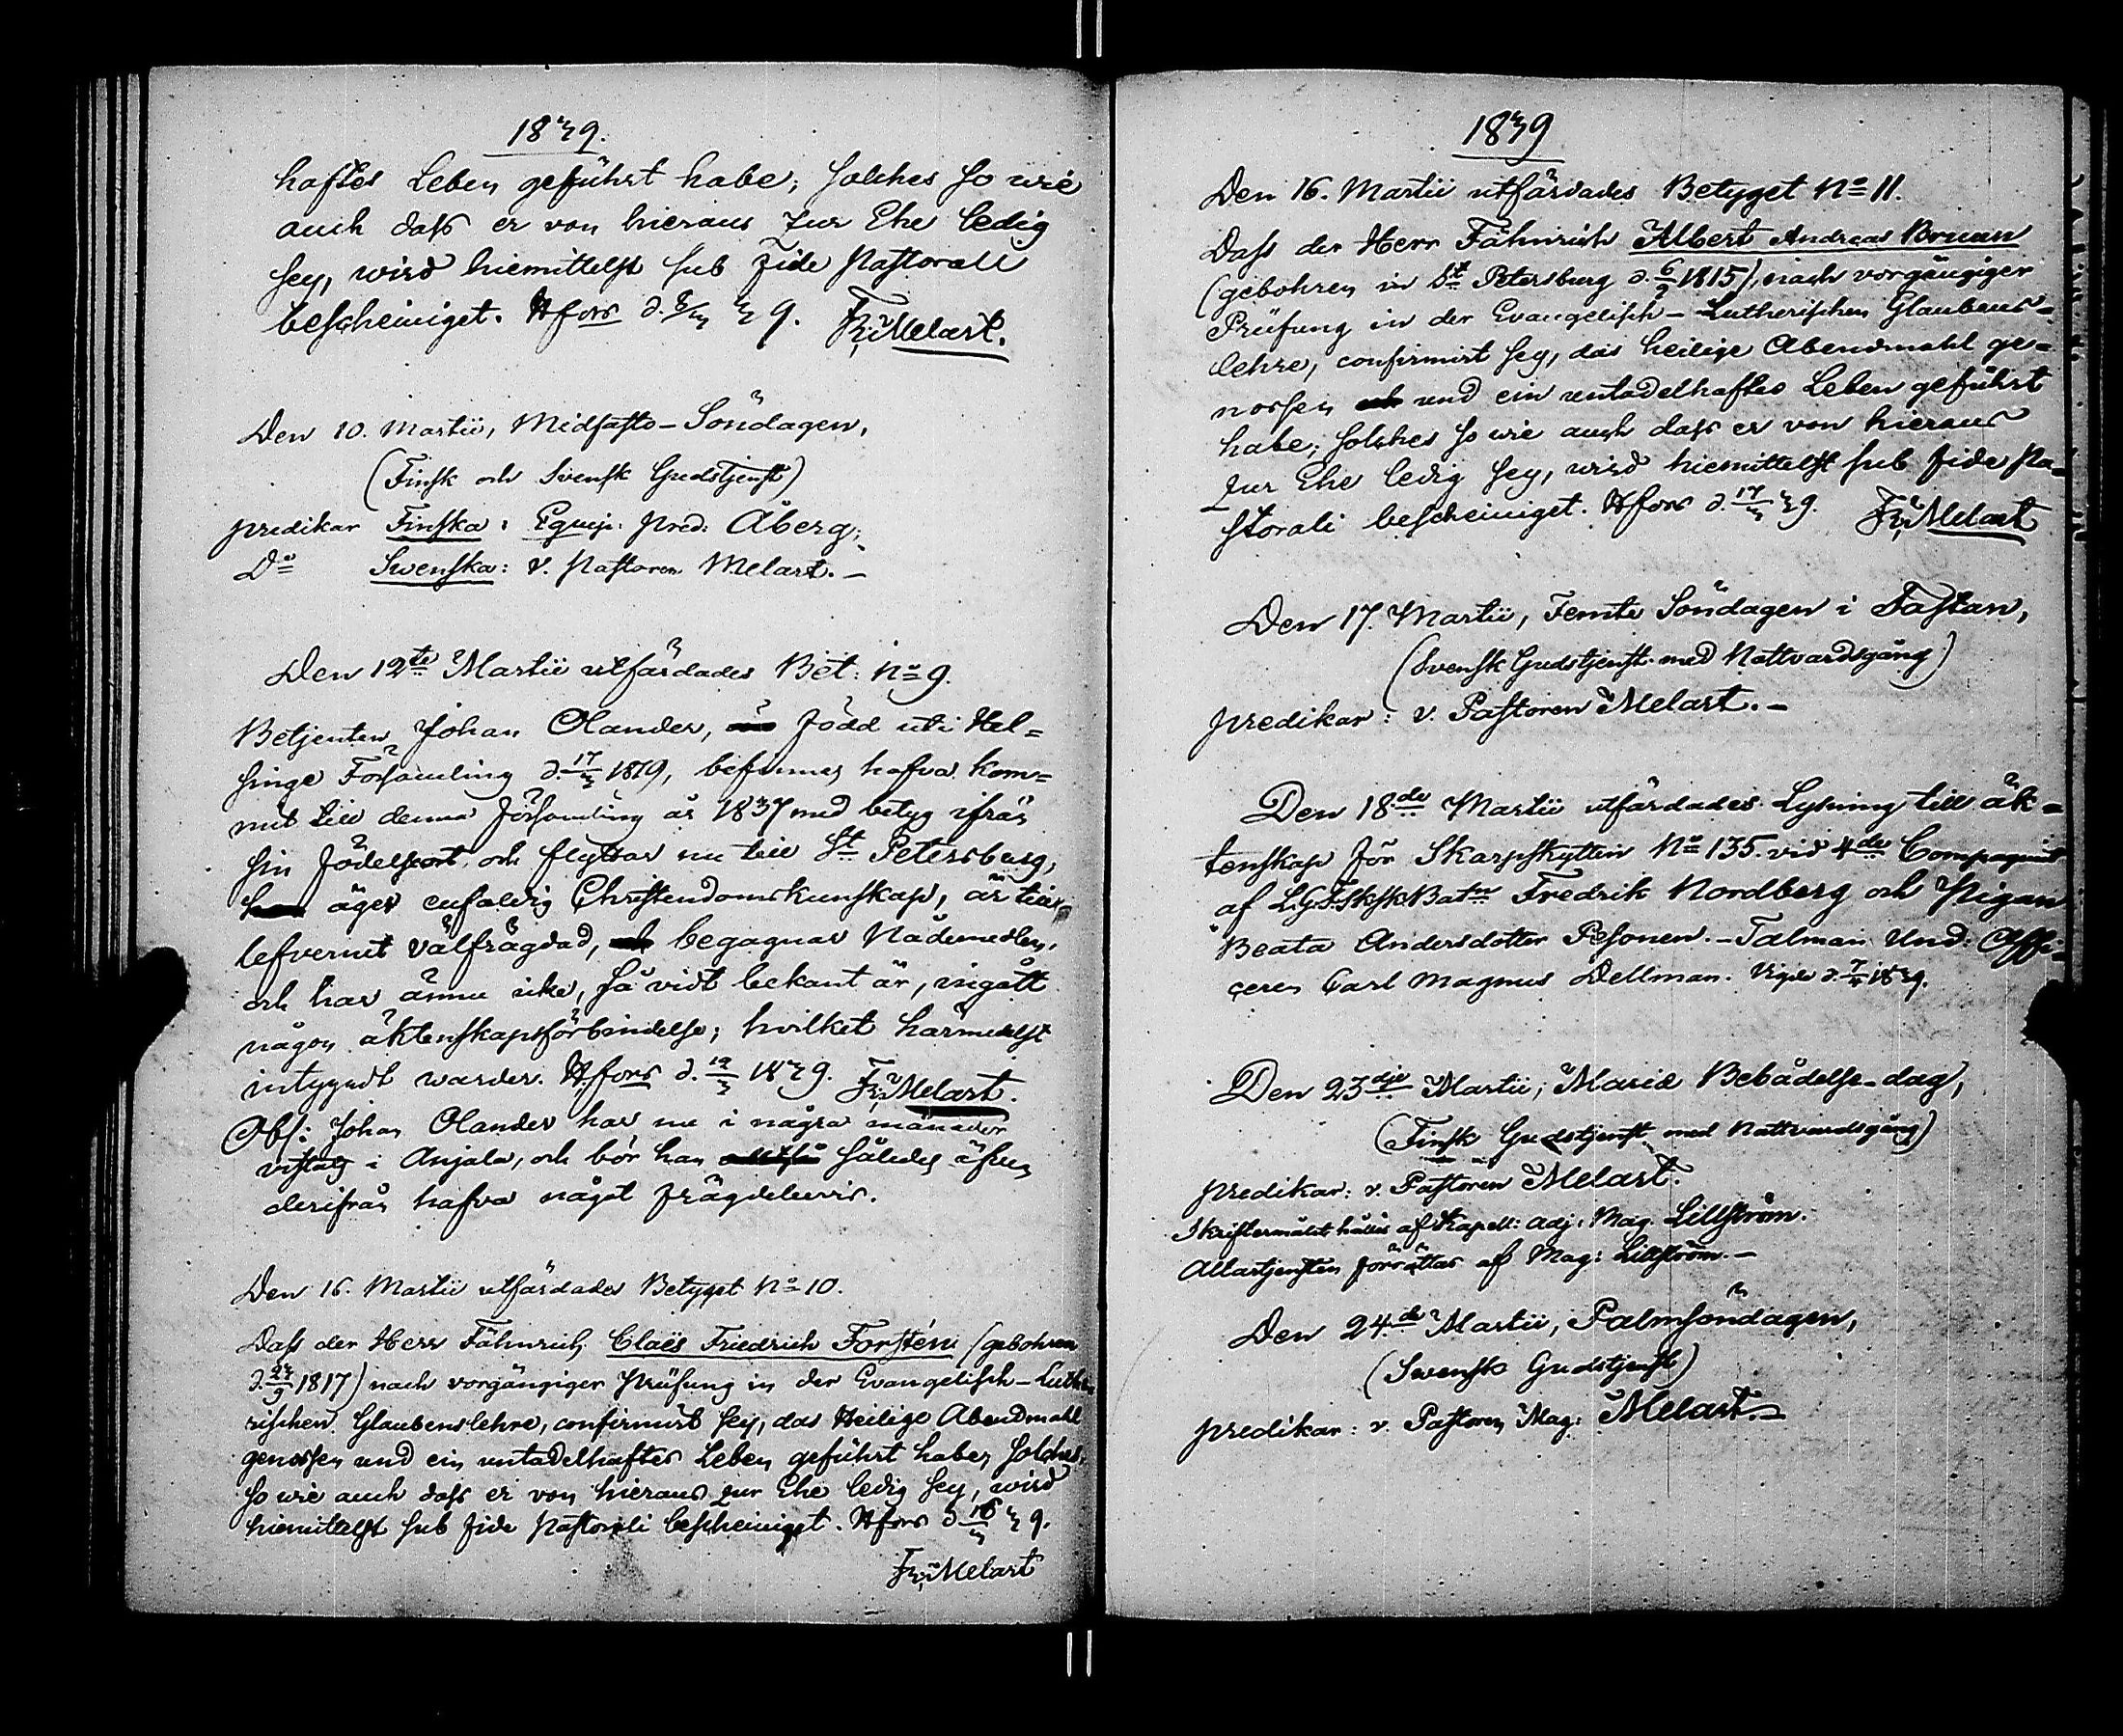 1839.
haftes Leben geführt habe; solches so wie
auch dass er von hieraus zur Ehe ledig
sey, wird hiemittelst sub fide Pastorali
bescheiniget. Hfors d. 8/3 39. Fr: Melart.
Den 10. Martii, Midfasto-Söndagen,
(Finsk och Svensk Gudstjenst)
predikar Finska: Eqvip: Pred: Åberg;
Do Swenska: v. Pastoren Melart.-
Den 12te Martii utfärdades Bet: No 9.
Betjenten Johan Olander, född uti Hel=
singe Församling d. 17/3 1819, befinnes hafva kom=
mit till denna församling år 1837 med betyg ifrån
sin födelseort, och flyttar nu till St Petersburg;
äger enfaldig Christendomskunskap, är till
lefvernet välfrägdad, begagnar Nådemedlen,
och har ännu icke, så vidt bekant är, ingått
någon äktenskapsförbindelse; hvilket härmedelst
intygadt warder. Hfors d. 12/3 1839. Fr: Melart.
Obs: Johan Olander har nu i några månader
vistats i Anjala, och bör han således äfven
derifrån hafva något frägdebevis.
Den 16. Martii utfärdades Betyget No 10.
Dass der Herr Fähnrich Claës Friedrich Forstén (gebohren
d. 23/9 1817) nach vorgängiger Prüfung in der Evangelisch-Luthe
rischen Glaubenslehre, confirmirt sey, das Heilige Abendmahl
genossen und ein untadelhaftes Leben geführt habe; solches,
so wie auch dass er von hieraus zur Ehe ledig sey, wird
hiemittelst sub fide Pastorali bescheiniget. Hfors d. 16/3 39.
Fr: Melart
1839
Den 16. Martii utfärdades Betyget No 11.
Dass der Herr Fähnrich Albert Andreas Bruun
(gebohren in St Petersburg d. 6/2 1815), nach vorgängiger
Prüfung in der Evangelisch-Lutherischen Glaubens=
lehre, confirmirt sey, das heilige Abendmahl ge=
nossen und ein untadelhaftes Leben geführt
habe; solches so wie auch dass er von hieraus
zur Ehe ledig sey, wird hiemittelst sub fide Pa=
storali bescheiniget. Hfors d. 17/3 39. Fr: Melart
Den 17. Martii, Femte Söndagen i Fastan,
(Svensk Gudstjenst med Nattvardsgång)
predikar: v. Pastoren Melart.-
Den 18de Martii utfärdades Lysning till äk=
tenskap för Skarpskytten No 135. vid 4de Compagniet
af L.G.F.Sk.Sk.Batn Fredrik Nordberg och Pigan
Beata Andersdotter Pesonen.-Talman Und: Offi=
ceren Carl Magnus Dellman. Vigde d. 7/4 1839.
Den 23dje Martii, Mariæ Bebådelse-dag,
(Finsk Gudstjenst med Nattvardsgång)
predikar: v. Pastoren Melart.
Skriftermålet hålles af Kapell: adj: Mag. Lillström.
Altartjensten förrättas af Mag: Lillström.-
Den 24.de Martii, Palmsöndagen,
(Swensk Gudstjenst)
predikar: v. Pastoren Mag: Melart.-